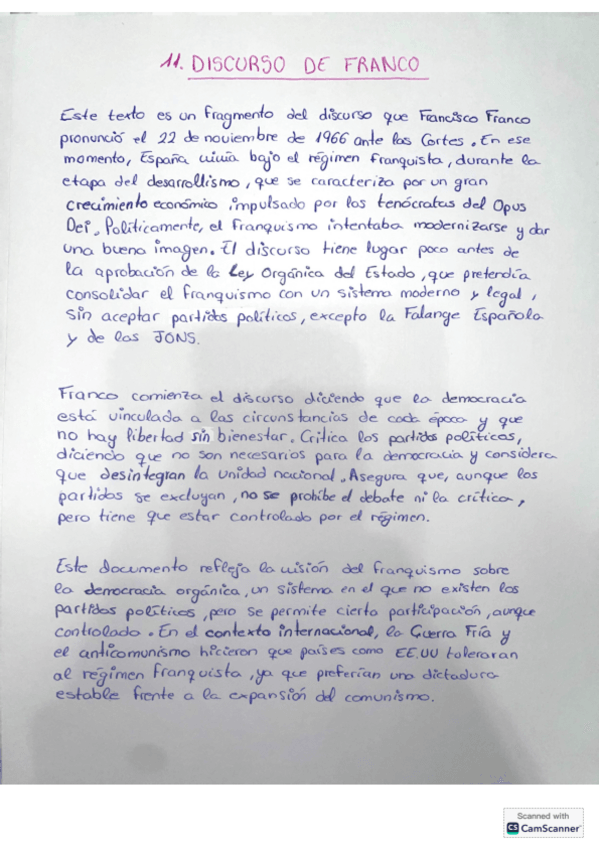 11. DISCURSO DE FRANCO
Este texto es un fragmento del discurso que Francisco Franco
pronunció el 22 de noviembre de 1966 ante las Cortes. En ese
momento, España vivía bajo el régimen franquista, durante la
etapa del desarrollismo, que se caracteriza por un gran
crecimiento económico impulsado por los tenócratas del Opus
Dei. Políticamente, el franquismo intentaba modernizarse y dar
una buena imagen. El discurso tiene lugar poco antes de
la aprobación de la Ley Orgánica del Estado, que pretendía
consolidar el franquismo con un sistema moderno y legal,
sin aceptar partidos políticos, excepto la Falange Española
y de las JONS.
Franco comienza el discurso diciendo que la democracia
está vinculada a las circunstancias de cada época y que
no hay libertad sin bienestar. Critica los partidos políticos,
diciendo que no son necesarios para la democracia y considera
que desintegran la unidad nacional. Asegura que, aunque los
partidos se excluyan, no se prohíbe el debate ni la crítica,
pero tiene que estar controlado por el régimen.
Este documento refleja la visión del franquismo sobre
la democracia orgánica, un sistema en el que no existen los
partidos políticos, pero se permite cierta participación, aunque
controlado. En el contexto internacional, la Guerra Fría y
el anticomunismo hicieron que países como EE.UU toleraran
al régimen franquista, ya que preferían una dictadura
estable frente a la expansión del comunismo.
Scanned with
CS CamScanner